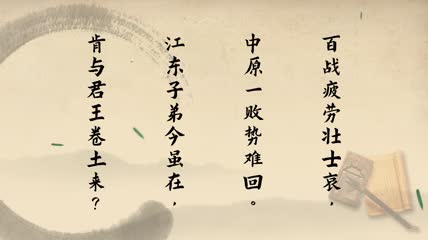 百战疲劳壮士哀，
中原一败势难回。
江东子弟今虽在，
肯与君王卷土来？